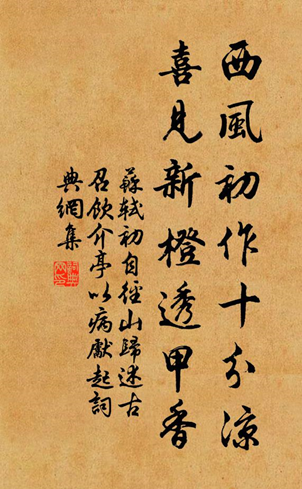 西風初作十分涼
喜見新橙透甲香
蘇軾初自徑山歸述古
召飲介亭以病獻起詞
典網集